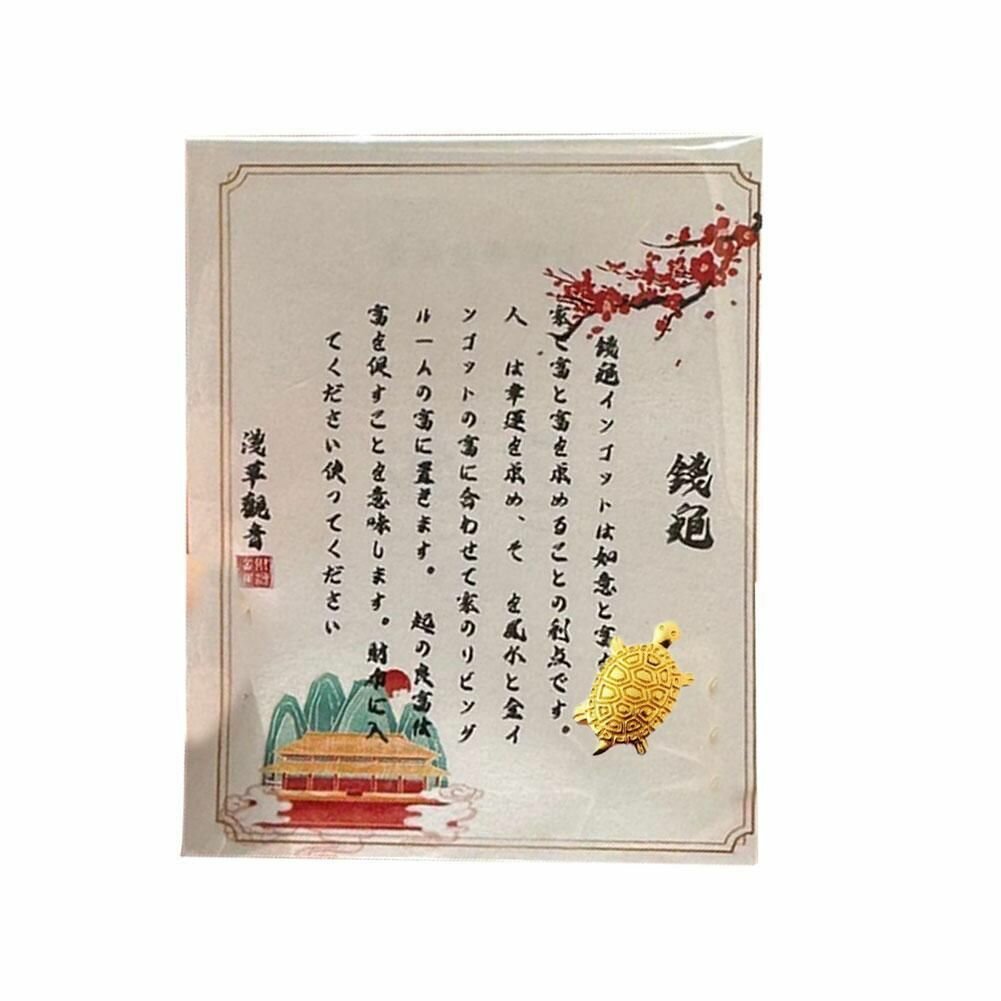 錢亀
錢亀インゴットは如意と富
家で富と富を求めることの利点です。
人 は幸運を求め、そ を風水と金イ
ンゴットの富に合わせて家のリビング
ル一人の富に置きます。 起の良富は
富を促すことを意味します。財布に入
てください使ってください
淺草觀音